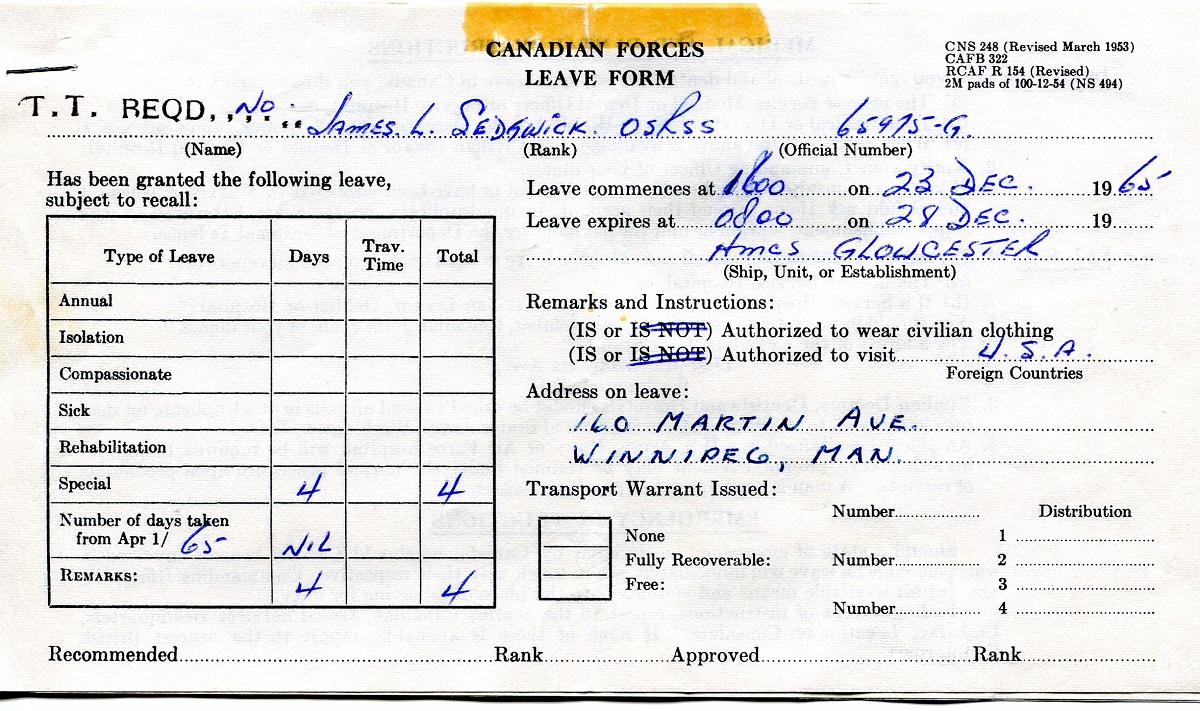 CANADIAN FORCES
LEAVE FORM
CNS 248 (Revised March 1953)
CAFB 322
RCAF R 154 (Revised)
2M pads of 100-12-54 (NS 494)
T.T. REQD,,,,.,, No. JAMES. L. SEDGWICK. OSRSS 65975-G.
(Name) (Rank) (Official Number)
Has been granted the following leave,
subject to recall:
Type of Leave Days Trav. Time Total
Annual
Isolation
Compassionate
Sick
Rehabilitation
Special 4 4
Number of days taken
from Apr 1/ 65 NIL
REMARKS: 4 4
Leave commences at 1600 on 23 DEC. 19 65
Leave expires at 0800 on 28 DEC. 19
HMCS GLOWCESTER
(Ship, Unit, or Establishment)
Remarks and Instructions:
(IS or IS NOT) Authorized to wear civilian clothing
(IS or IS NOT) Authorized to visit U.S.A.
Foreign Countries
Address on leave:
160 MARTIN AVE.
WINNIPEG, MAN.
Transport Warrant Issued:
Number Distribution
None 1
Fully Recoverable: Number 2
Free: 3
Number 4
Recommended Rank Approved Rank